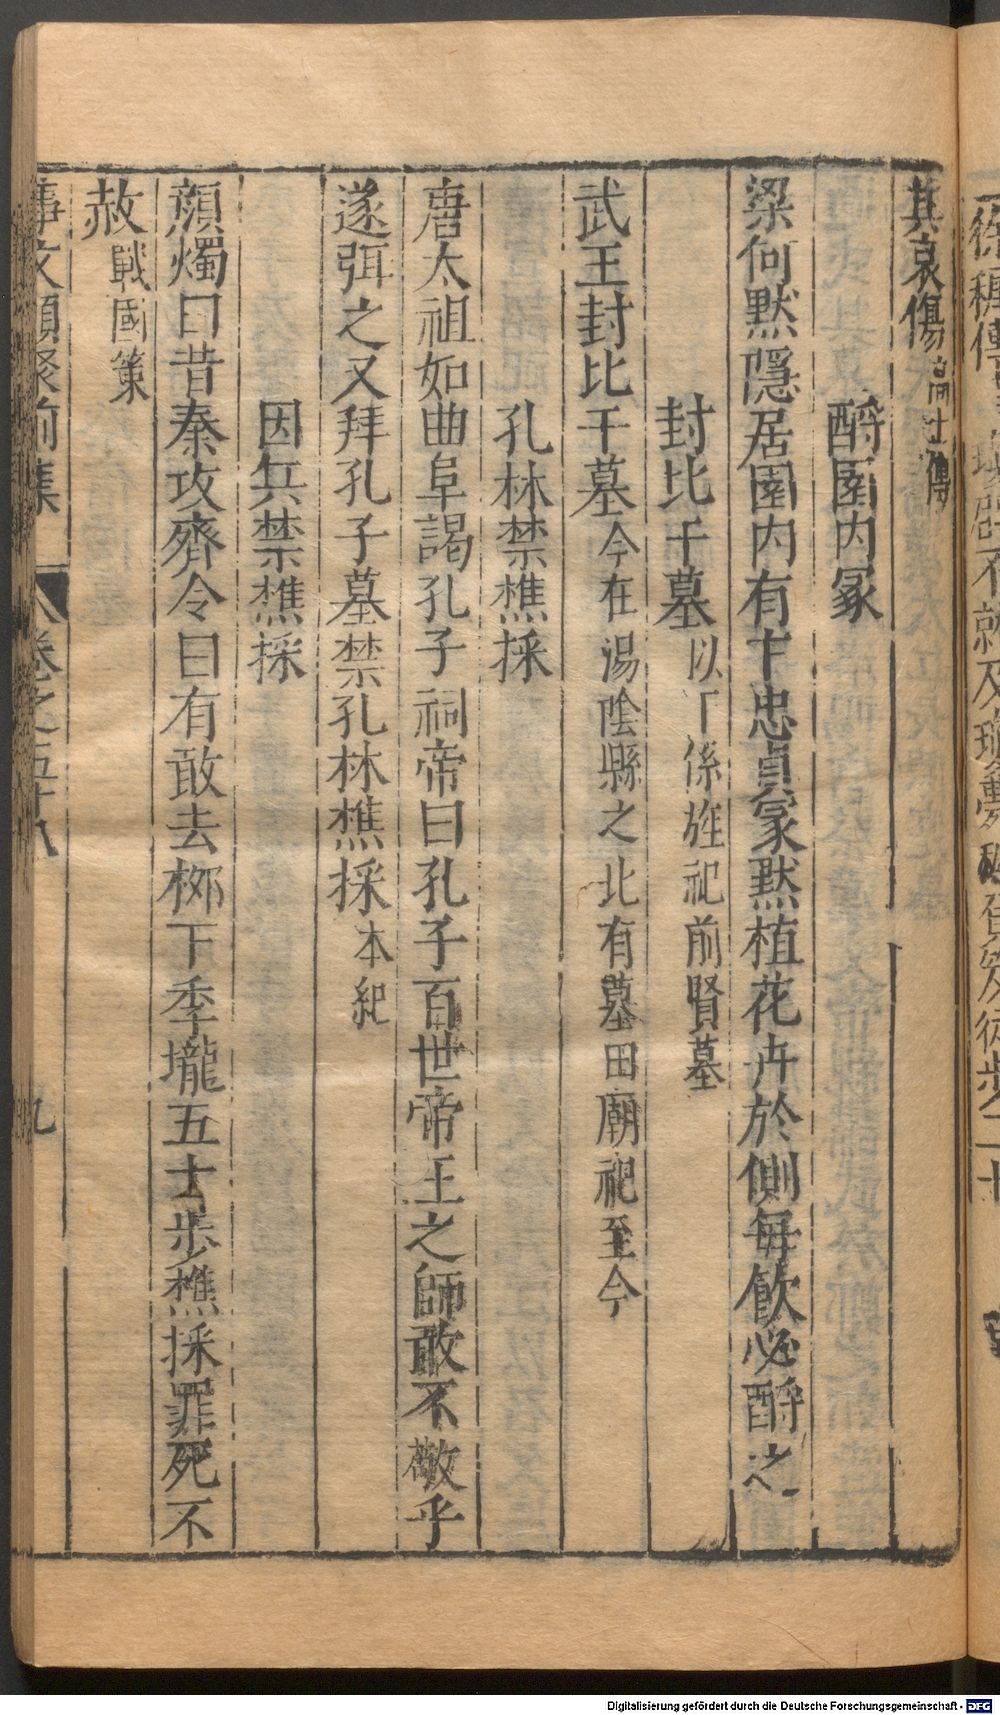 其哀傷高士傳
酹園内冢
梁何黙隱居園内有卞忠貞冡黙植花卉於側每飲必酹之
封比干墓以下係旌祀前賢墓
武王封比干墓今在湯隂縣之北有墓田廟祀至今
孔林禁樵採
唐太祖如曲阜謁孔子祠帝曰孔子百世帝王之師敢不敬乎
遂弭之又拜孔子墓禁孔林樵採本紀
因兵禁樵採
顔燭曰昔秦攻齊令曰有敢去栁下季壠五十步樵採罪死不
赦戰國策
事文類聚前集 卷之五十八 九
徐穉傳 不就及瓊 穉 徒步
Digitalisierung gefördert durch die Deutsche Forschungsgemeinschaft - DFG